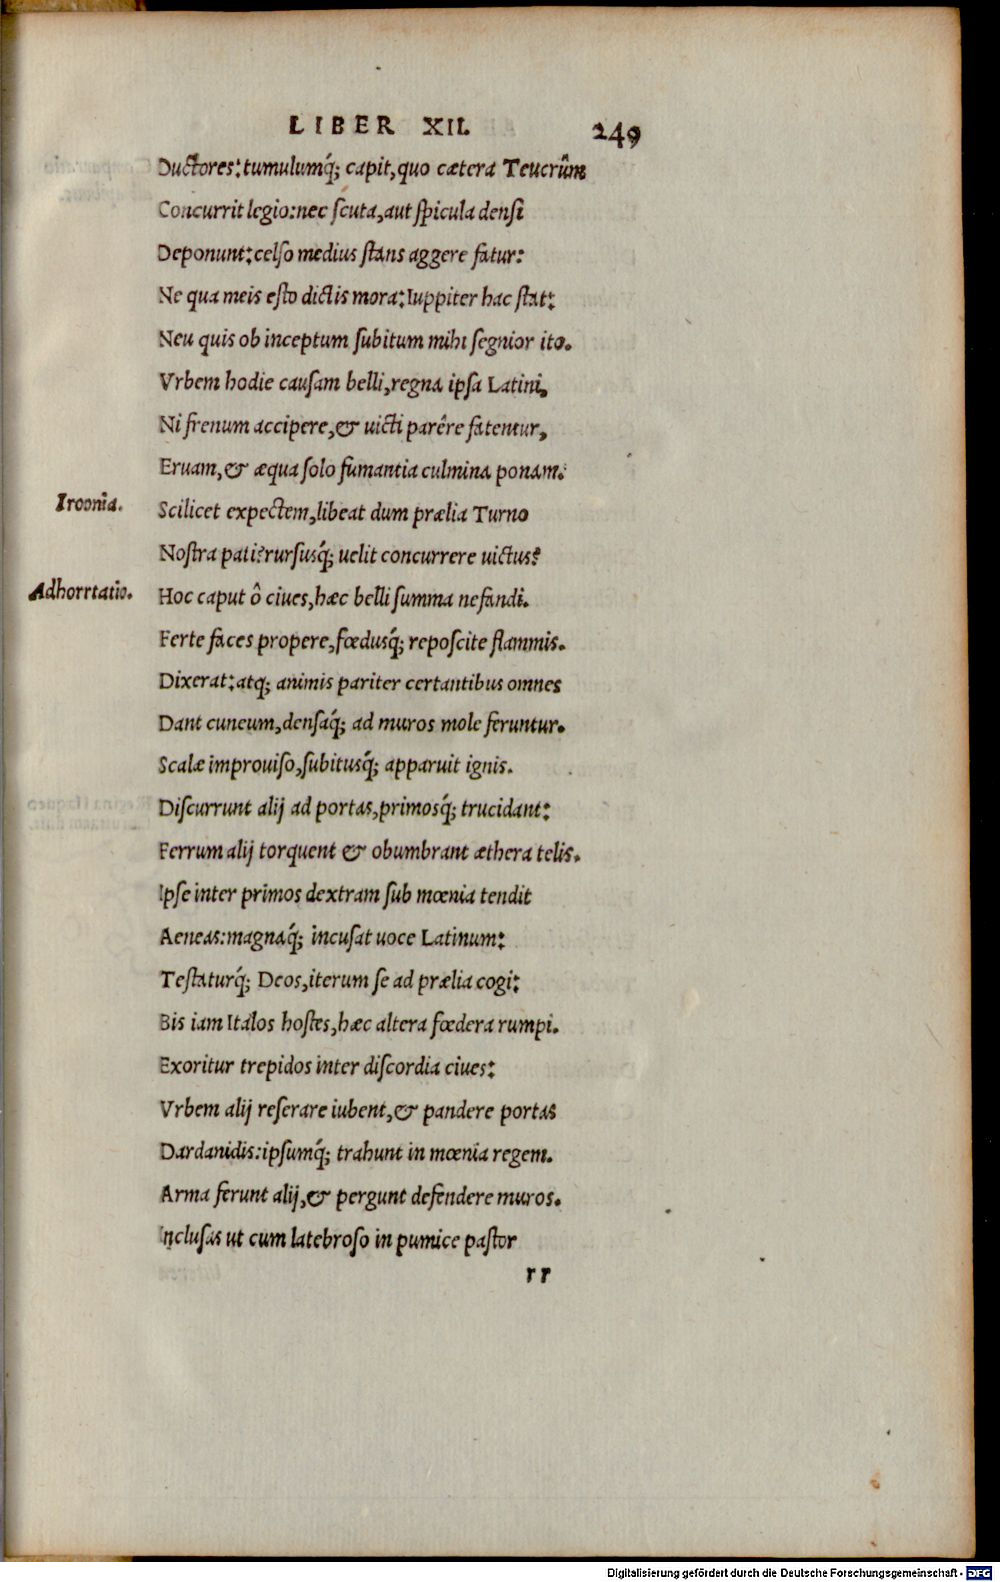 LIBER XII. 249
Ductores: tumulumq́; capit, quo cætera Teucrûm
Concurrit legio: nec scuta, aut spicula densi
Deponunt: celso medius stans aggere fatur:
Ne qua meis esto dictis mora: Iuppiter hac stat:
Neu quis ob inceptum subitum mihi segnior ito.
Vrbem hodie causam belli, regna ipsa Latini,
Ni frenum accipere, & uicti parêre fatentur,
Eruam, & æqua solo fumantia culmina ponam.
Iroonia.
Scilicet expectem, libeat dum prælia Turno
Nostra pati? rursusq́; uelit concurrere uictus?
Adhorrtatio.
Hoc caput ô ciues, hæc belli summa nefandi.
Ferte faces propere, fœdusq́; reposcite flammis.
Dixerat: atq; animis pariter certantibus omnes
Dant cuneum, densaq́; ad muros mole feruntur.
Scalæ improuiso, subitusq́; apparuit ignis.
Discurrunt alij ad portas, primosq́; trucidant:
Ferrum alij torquent & obumbrant æthera telis.
Ipse inter primos dextram sub mœnia tendit
Aeneas: magnaq́; incusat uoce Latinum:
Testaturq́; Deos, iterum se ad prælia cogi:
Bis iam Italos hostes, hæc altera fœdera rumpi.
Exoritur trepidos inter discordia ciues:
Vrbem alij reserare iubent, & pandere portas
Dardanidis: ipsumq́; trahunt in mœnia regem.
Arma ferunt alij, & pergunt defendere muros.
Inclusas ut cum latebroso in pumice pastor
rr
Digitalisierung gefördert durch die Deutsche Forschungsgemeinschaft - DFG